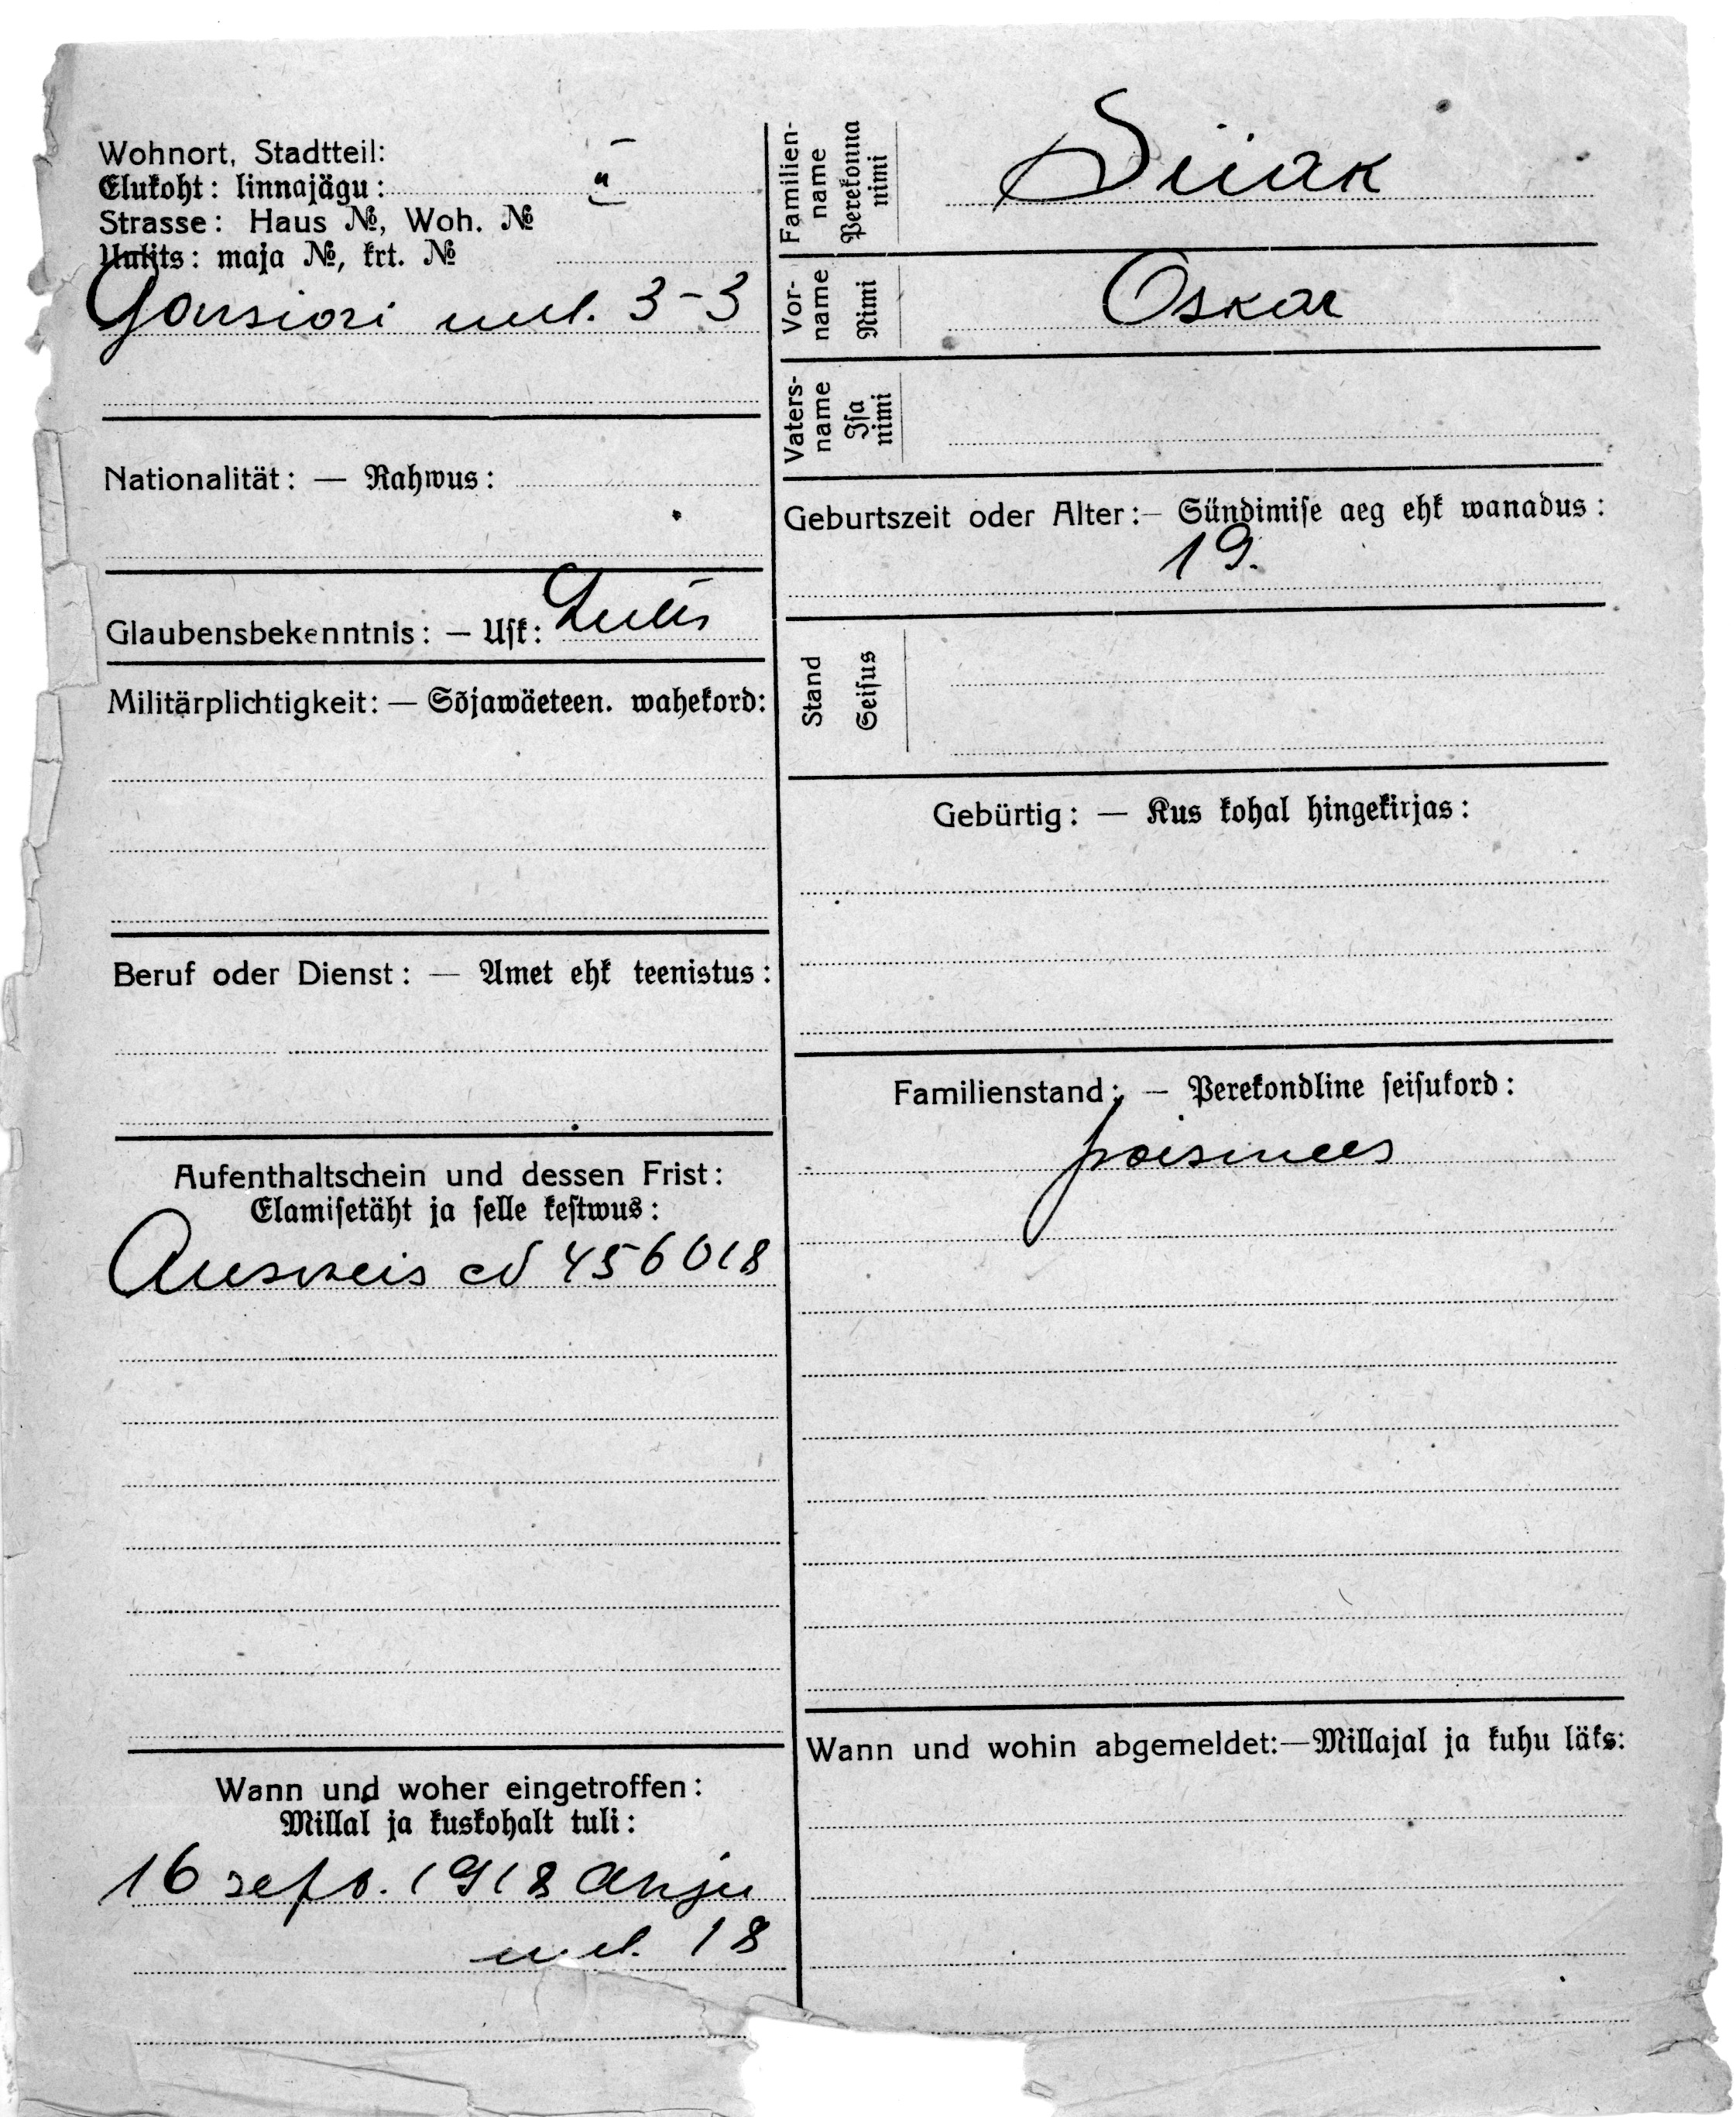 Wohnort, Stadtteil:
Elukoht: linnajägu: II
Strasse: Haus №, Woh. №
Uulits: maja №, krt. №
Gonsiori uul. 3-3
Nationalität: — Rahwus:
Glaubensbekenntnis: — Usk: Luth
Militärplichtigkeit: — Sõjawäeteen. wahekord:
Beruf oder Dienst: — Amet ehk teenistus:
Aufenthaltschein und dessen Frist:
Elamisetäht ja selle kestwus:
Ausweis № 456018
Wann und woher eingetroffen:
Millal ja kuskohalt tuli:
16 sept. 1918 Harju
uul. 18
Familien-
name
Perekonna
nimi
Siiak
Vor-
name
Nimi
Oskar
Vaters-
name
Isa
nimi
Geburtszeit oder Alter:— Sündimise aeg ehk wanadus:
19.
Stand
Seisus
Gebürtig: — Kus kohal hingekirjas:
Familienstand: — Perekondline seisukord:
poismees
Wann und wohin abgemeldet:—Millajal ja kuhu läks: